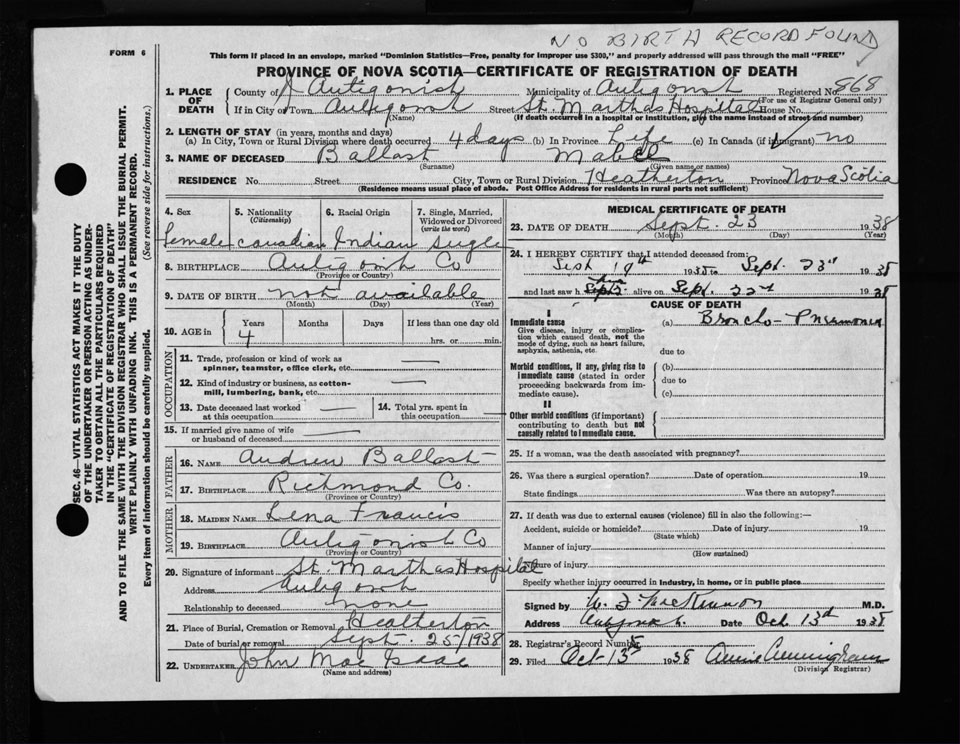 NO BIRTH RECORD FOUND
FORM 6
This form if placed in an envelope, marked "Dominion Statistics—Free, penalty for improper use $300," and properly addressed will pass through the mail "FREE"
PROVINCE OF NOVA SCOTIA—CERTIFICATE OF REGISTRATION OF DEATH
1. PLACE OF DEATH
County of Antigonish Municipality of Antigonish Registered No. 868
(For use of Registrar General only)
If in City or Town Antigonish Street St. Marthas Hospital House No.
(Name) (If death occurred in a hospital or institution, give the name instead of street and number)
2. LENGTH OF STAY (in years, months and days)
(a) In City, Town or Rural Division where death occurred 4 days (b) In Province Life (c) In Canada (if immigrant) no
3. NAME OF DECEASED Ballast Mabel
(Surname) (Given name or names)
RESIDENCE No. Street City, Town or Rural Division Heatherton Province Nova Scotia
(Residence means usual place of abode. Post Office Address for residents in rural parts not sufficient)
4. Sex 5. Nationality (Citizenship) 6. Racial Origin 7. Single, Married, Widowed or Divorced (write the word)
Female Canadian Indian Single
8. BIRTHPLACE Antigonish Co
(Province or Country)
9. DATE OF BIRTH not available
(Month) (Day) (Year)
10. AGE in Years Months Days If less than one day old
4 hrs. or min.
OCCUPATION
11. Trade, profession or kind of work as spinner, teamster, office clerk, etc.
12. Kind of industry or business, as cotton-mill, lumbering, bank, etc.
13. Date deceased last worked at this occupation
14. Total yrs. spent in this occupation
15. If married give name of wife or husband of deceased
FATHER
16. NAME Andrew Ballast
17. BIRTHPLACE Richmond Co.
(Province or Country)
MOTHER
18. MAIDEN NAME Lena Francis
19. BIRTHPLACE Antigonish Co
(Province or Country)
20. Signature of informant St. Marthas Hospital
Address Antigonish
Relationship to deceased none
21. Place of Burial, Cremation or Removal Heatherton
Date of burial or removal Sept. 25/1938
22. UNDERTAKER John Mac Isaac
(Name and address)
MEDICAL CERTIFICATE OF DEATH
23. DATE OF DEATH Sept. 23 1938
(Month) (Day) (Year)
24. I HEREBY CERTIFY that I attended deceased from:
Sept 19th 1938 to Sept. 23rd 1938
and last saw h alive on Sept. 22nd 1938
CAUSE OF DEATH
I
Immediate cause (a) Broncho-Pneumonia
Give disease, injury or complication which caused death, not the mode of dying, such as heart failure, asphyxia, asthenia, etc.
due to
Morbid conditions, if any, giving rise to immediate cause (stated in order proceeding backwards from immediate cause).
(b)
due to
(c)
II
Other morbid conditions (if important) contributing to death but not causally related to immediate cause.
25. If a woman, was the death associated with pregnancy?
26. Was there a surgical operation? Date of operation 19
State findings Was there an autopsy?
27. If death was due to external causes (violence) fill in also the following:—
Accident, suicide or homicide? Date of injury 19
(State which)
Manner of injury
(How sustained)
Nature of injury
Specify whether injury occurred in industry, in home, or in public place
Signed by W. F. MacKinnon M.D.
Address Antigonish Date Oct. 13th 1938
28. Registrar's Record Number
29. Filed Oct-13 1938 Annie Cunningham
(Division Registrar)
SEC. 46—VITAL STATISTICS ACT MAKES IT THE DUTY
OF THE UNDERTAKER OR PERSON ACTING AS UNDER-
TAKER TO OBTAIN ALL THE PARTICULARS REQUIRED
IN THE "CERTIFICATE OF REGISTRATION OF DEATH"
AND TO FILE THE SAME WITH THE DIVISION REGISTRAR WHO SHALL ISSUE THE BURIAL PERMIT.
WRITE PLAINLY WITH UNFADING INK. THIS IS A PERMANENT RECORD.
Every item of information should be carefully supplied. (See reverse side for instructions.)